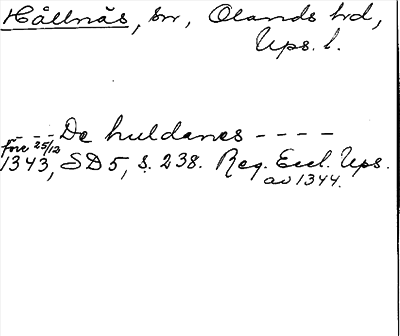 Hållnäs, sn, Olands hd,
Ups. l.
- - - De huldanes - - - -
före 25/12
1343, SD 5, s. 238. Reg. Eccl. Ups.
av 1344.